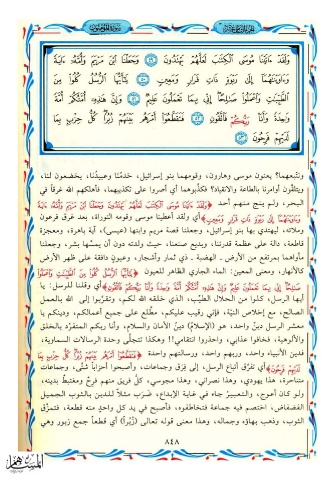 سورة المؤمنون
وَلَقَدْ ءَاتَيْنَا مُوسَى ٱلْكِتَٰبَ لَعَلَّهُمْ يَهْتَدُونَ ٤٩ وَجَعَلْنَا ٱبْنَ مَرْيَمَ وَأُمَّهُۥٓ ءَايَةً
وَءَاوَيْنَٰهُمَآ إِلَىٰ رَبْوَةٍ ذَاتِ قَرَارٍ وَمَعِينٍ ٥٠ يَٰٓأَيُّهَا ٱلرُّسُلُ كُلُوا۟ مِنَ
ٱلطَّيِّبَٰتِ وَٱعْمَلُوا۟ صَٰلِحًا إِنِّى بِمَا تَعْمَلُونَ عَلِيمٌ ٥١ وَإِنَّ هَٰذِهِۦٓ أُمَّتُكُمْ أُمَّةً
وَٰحِدَةً وَأَنَا۠ رَبُّكُمْ فَٱتَّقُونِ ٥٢ فَتَقَطَّعُوٓا۟ أَمْرَهُم بَيْنَهُمْ زُبُرًا كُلُّ حِزْبٍۭ بِمَا
لَدَيْهِمْ فَرِحُونَ ٥٣
ونتبعهما؟ يعنون موسى وهارون، وقومهما بنو إسرائيل، خدمًا وعبيدًا، يخضعون لنا،
ويتلقّون أوامرنا بالطاعة والانقياد؟ فكذَّبوهما أي أصروا على تكذيبهما، فأهلكهم الله غرقًا في
البحر، ولم ينج منهم أحد ﴿وَلَقَدْ ءَاتَيْنَا مُوسَى ٱلْكِتَٰبَ لَعَلَّهُمْ يَهْتَدُونَ وَجَعَلْنَا ٱبْنَ مَرْيَمَ وَأُمَّهُۥٓ ءَايَةً
وَءَاوَيْنَٰهُمَآ إِلَىٰ رَبْوَةٍ ذَاتِ قَرَارٍ وَمَعِينٍ﴾ أي ولقد أعطينا موسى وقومه التوراة، بعد غرق فرعون
وملائه، ليهتدي بها بنو إسرائيل، وجعلنا قصة مريم وابنها (عيسى)، آية باهرة، ومعجزة
قاطعة، دالة على عظمة قدرتنا، وبديع صنعنا، حيث ولدته دون أن يمسّها بشر، وجعلنا
مأواهما بمرتفع من الأرض ـ الهضبة ـ ذي ثمار وأشجار، وعيونٍ دافقة على ظهر الأرض
كالأنهار، ومعنى المعين: الماء الجاري الظاهر للعيون ﴿يَٰٓأَيُّهَا ٱلرُّسُلُ كُلُوا۟ مِنَ ٱلطَّيِّبَٰتِ وَٱعْمَلُوا۟
صَٰلِحًا إِنِّى بِمَا تَعْمَلُونَ عَلِيمٌ وَإِنَّ هَٰذِهِۦٓ أُمَّتُكُمْ أُمَّةً وَٰحِدَةً وَأَنَا۠ رَبُّكُمْ فَٱتَّقُونِ﴾ أي وقلنا للرسل: يا
أيها الرسل، كلوا من الحلال الطيّب، الذي خلقه الله لكم، وتقرّبوا إلى الله بالعمل
الصالح، مع إخلاص النيّة، فإني رقيب عليكم، مطّلع على جميع أعمالكم، ودينكم يا
معشر الرسل دينٌ واحد، هو (الإسلام) دينُ الأمان والسلام، وأنا ربكم المتفرّد بالخلق
والألوهية، فخافوا عذابي، واحذروا انتقامي!! وهكذا تتجلّى وحدة الرسالات السماوية،
فدين الأنبياء واحد، وربهم واحد، ورسالتهم واحدة ﴿فَتَقَطَّعُوٓا۟ أَمْرَهُم بَيْنَهُمْ زُبُرًا كُلُّ حِزْبٍۭ بِمَا
لَدَيْهِمْ فَرِحُونَ﴾ أي تفرّق أتباع الرسل، إلى فِرَقٍ وجماعات، وأصبحوا أحزابًا شتّى، وجماعات
متناحرة، هذا يهودي، وهذا نصراني، وهذا مجوسي، كلُّ فريق منهم فرحٌ ومغتبط بدينه،
ولو كان أعوج، والتعبيرُ جاء في غاية الإبداع، ضَرَب مثلاً للدين بالثوب الجميل
الفضفاض، اختصم فيه جماعة فتخاطفوه، فأصبح في يد كل واحدٍ منه قطعة، فتمزّق
الثوب، وذهب بهاؤه وجماله، وهذا معنى قوله تعالى (زُبُرًا) أي قطعاً جمع زبور وهي
٨٤٨